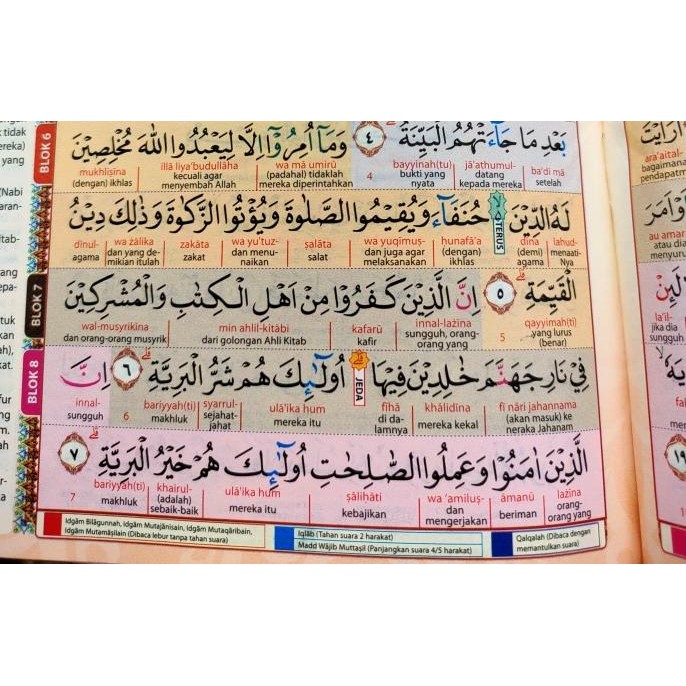 BLOK 6
بَعْدِ مَا جَاۤءَتْهُمُ الْبَيِّنَةُ ۗ ٤ وَمَآ اُمِرُوْٓا اِلَّا لِيَعْبُدُوا اللّٰهَ مُخْلِصِيْنَ
ba'di mā jā'athumul- bayyinah(tu) 4 wa mā umirū illā liya'budullāha mukhliṣīna
setelah datang kepada mereka bukti yang nyata (padahal) tidaklah mereka diperintahkan kecuali agar menyembah Allah (dengan) ikhlas
لَهُ الدِّيْنَ ەۙ TERUS حُنَفَاۤءَ وَيُقِيْمُوا الصَّلٰوةَ وَيُؤْتُوا الزَّكٰوةَ وَذٰلِكَ دِيْنُ
lahud- dīna ḥunafā'a wa yuqīmuṣ- ṣalāta wa yu'tuz- zakāta wa żālika dīnul-
menaati-Nya (demi) agama (dengan) ikhlas dan juga agar melaksanakan salat dan menu-naikan zakat dan yang de-mikian itulah agama
BLOK 7
الْقَيِّمَةِۗ ٥ اِنَّ الَّذِيْنَ كَفَرُوْا مِنْ اَهْلِ الْكِتٰبِ وَالْمُشْرِكِيْنَ
qayyimah(ti) 5 innal-lażīna kafarū min ahlil-kitābi wal-musyrikīna
yang lurus (benar) sungguh, orang-orang yang kafir dari golongan Ahli Kitab dan orang-orang musyrik
BLOK 8
فِيْ نَارِ جَهَنَّمَ خٰلِدِيْنَ فِيْهَاۗ JEDA اُولٰۤىِٕكَ هُمْ شَرُّ الْبَرِيَّةِۗ ٦ اِنَّ
fī nāri jahannama khālidīna fīhā ulā'ika hum syarrul- bariyyah(ti) 6 innal-
(akan masuk) ke neraka Jahanam mereka kekal di da-lamnya mereka itu sejahat-jahat makhluk sungguh
الَّذِيْنَ اٰمَنُوْا وَعَمِلُوا الصّٰلِحٰتِ اُولٰۤىِٕكَ هُمْ خَيْرُ الْبَرِيَّةِۗ ٧
lażīna āmanū wa 'amiluṣ- ṣāliḥāti ulā'ika hum khairul- bariyyah(ti) 7
orang-orang yang beriman dan mengerjakan kebajikan mereka itu (adalah) sebaik-baik makhluk
Idgām Bilāgunnah, Idgām Mutajānisain, Idgām Mutaqāribain,
Idgām Mutamāṡilain (Dibaca lebur tanpa tahan suara)
Iqlāb (Tahan suara 2 harakat)
Madd Wājib Muttaṣil (Panjangkan suara 4/5 harakat)
Qalqalah (Dibaca dengan
memantulkan suara)